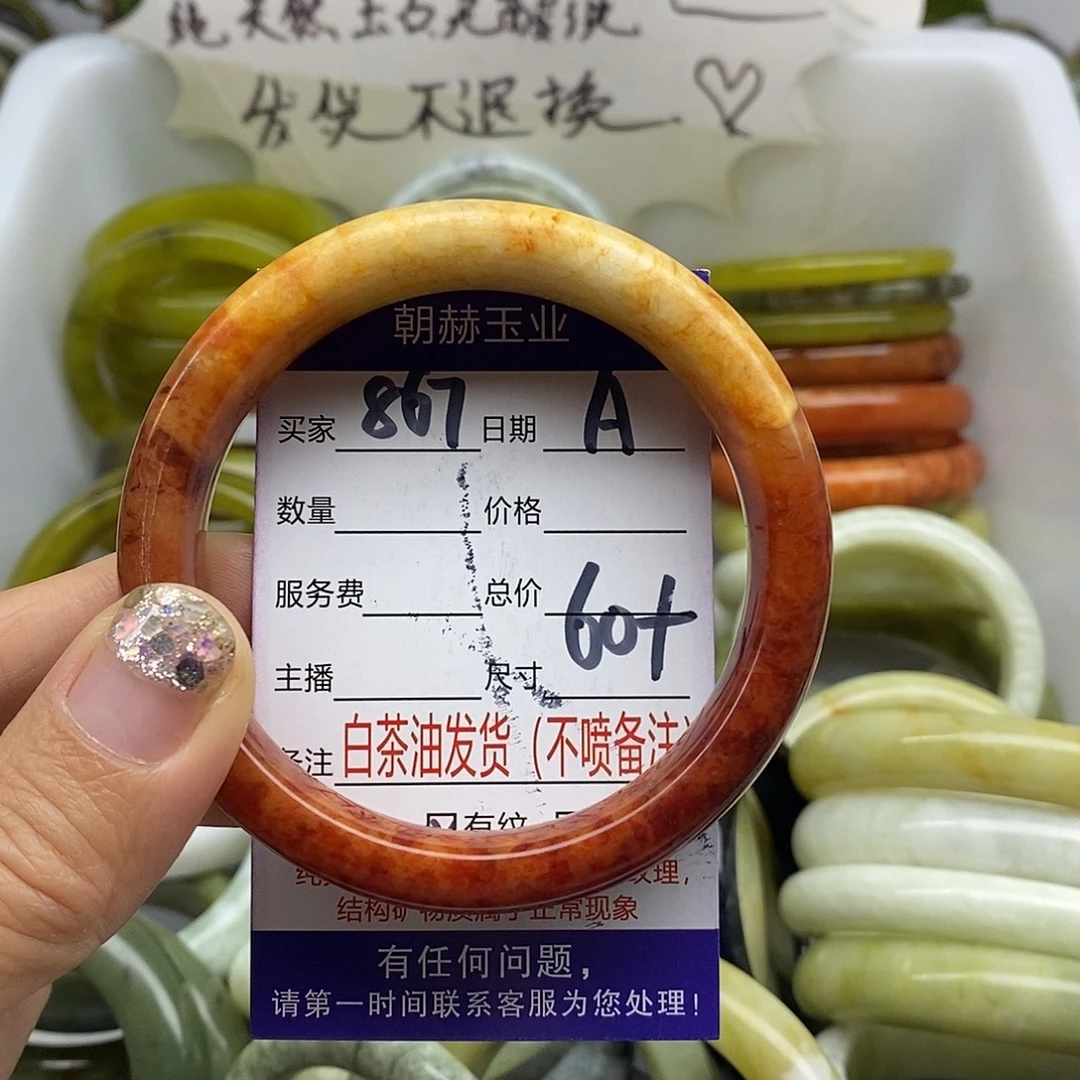 纯天然玉石无酸洗
发货不退换
朝赫玉业
买家 867 日期 A
数量 价格
服务费 总价
主播 尺寸 60+
备注 白茶油发货(不喷备注)
有纹
纹理,
结构矿物质属于正常现象
有任何问题,
请第一时间联系客服为您处理!